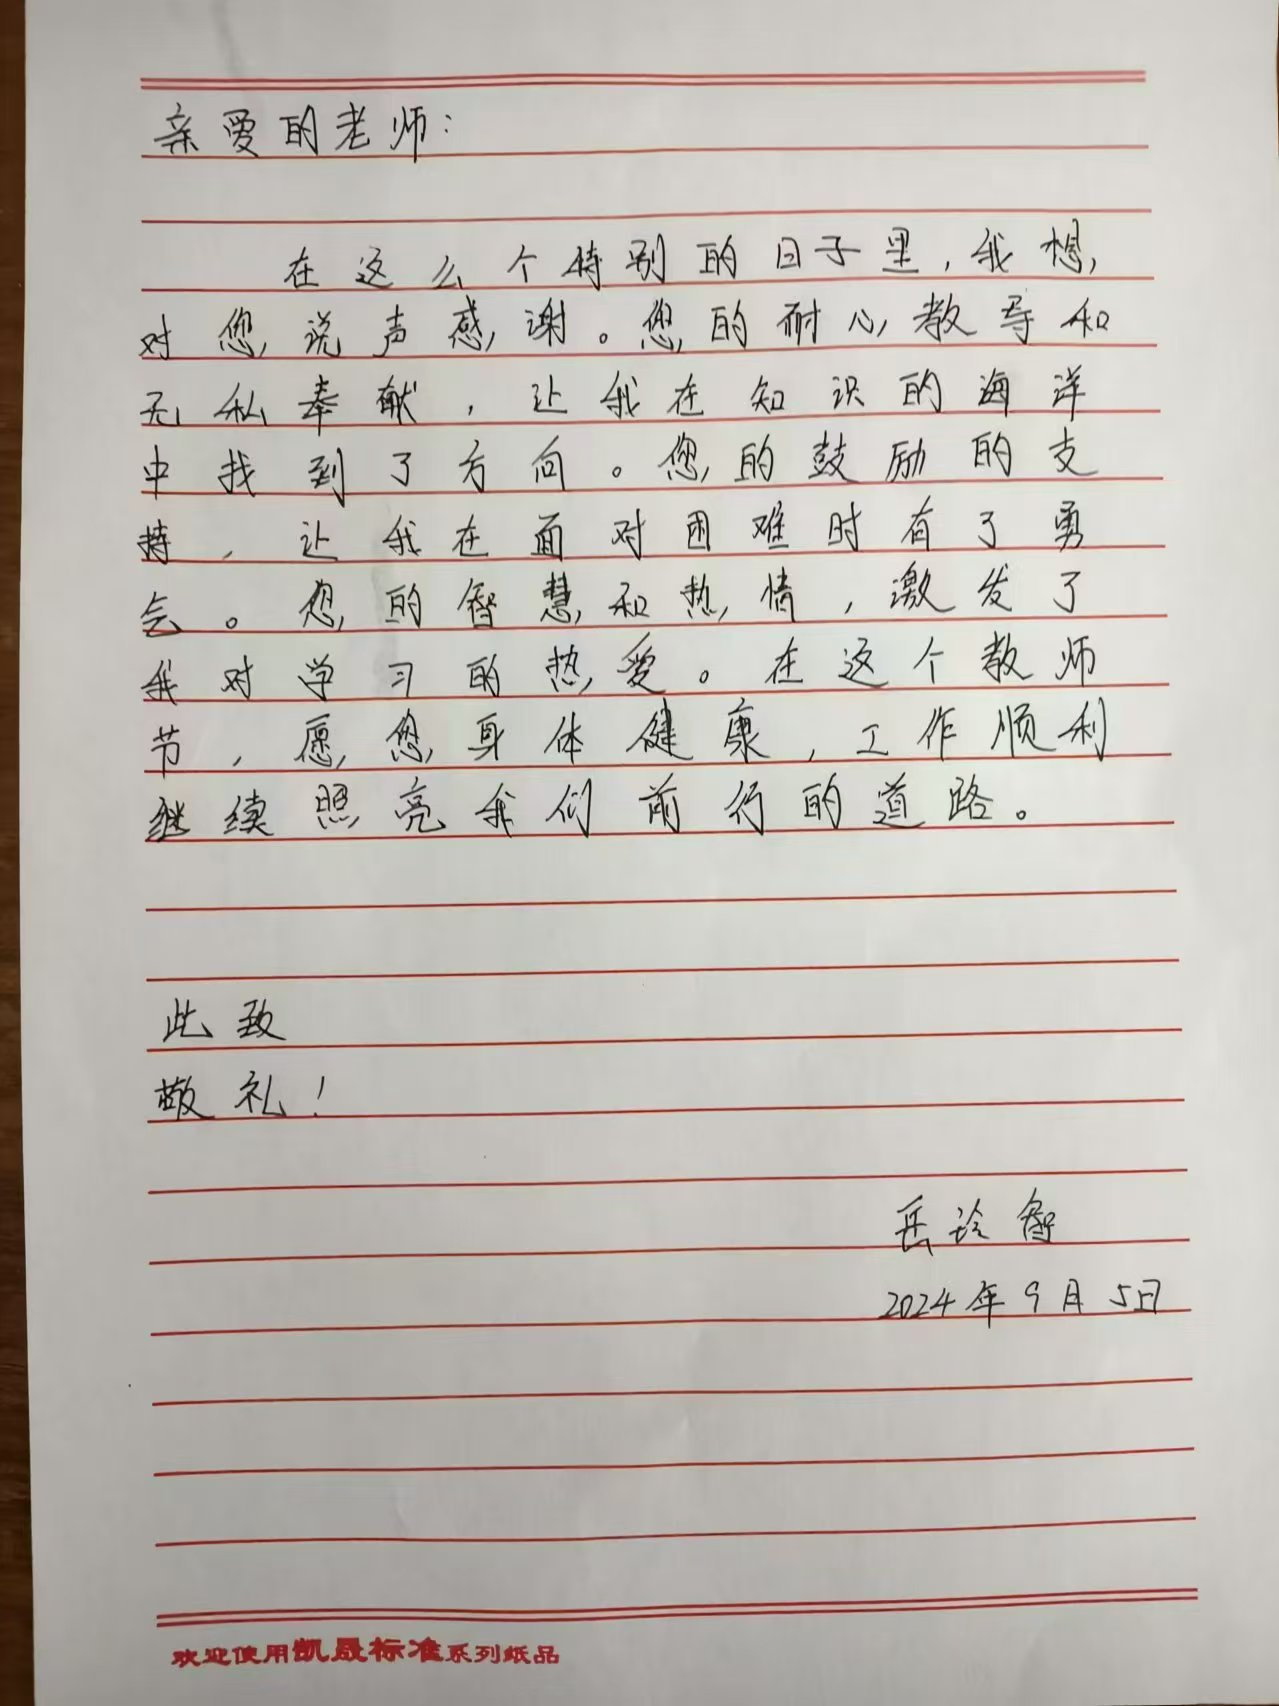 亲爱的老师：
在这么个特别的日子里，我想
对您说声感谢。您的耐心教导和
无私奉献，让我在知识的海洋
中找到了方向。您的鼓励的支
持，让我在面对困难时有了勇
气。您的智慧和热情，激发了
我对学习的热爱。在这个教师
节，愿您身体健康，工作顺利
继续照亮我们前行的道路。
此致
敬礼！
岳
2024年9月5日
欢迎使用凯晟标准系列纸品